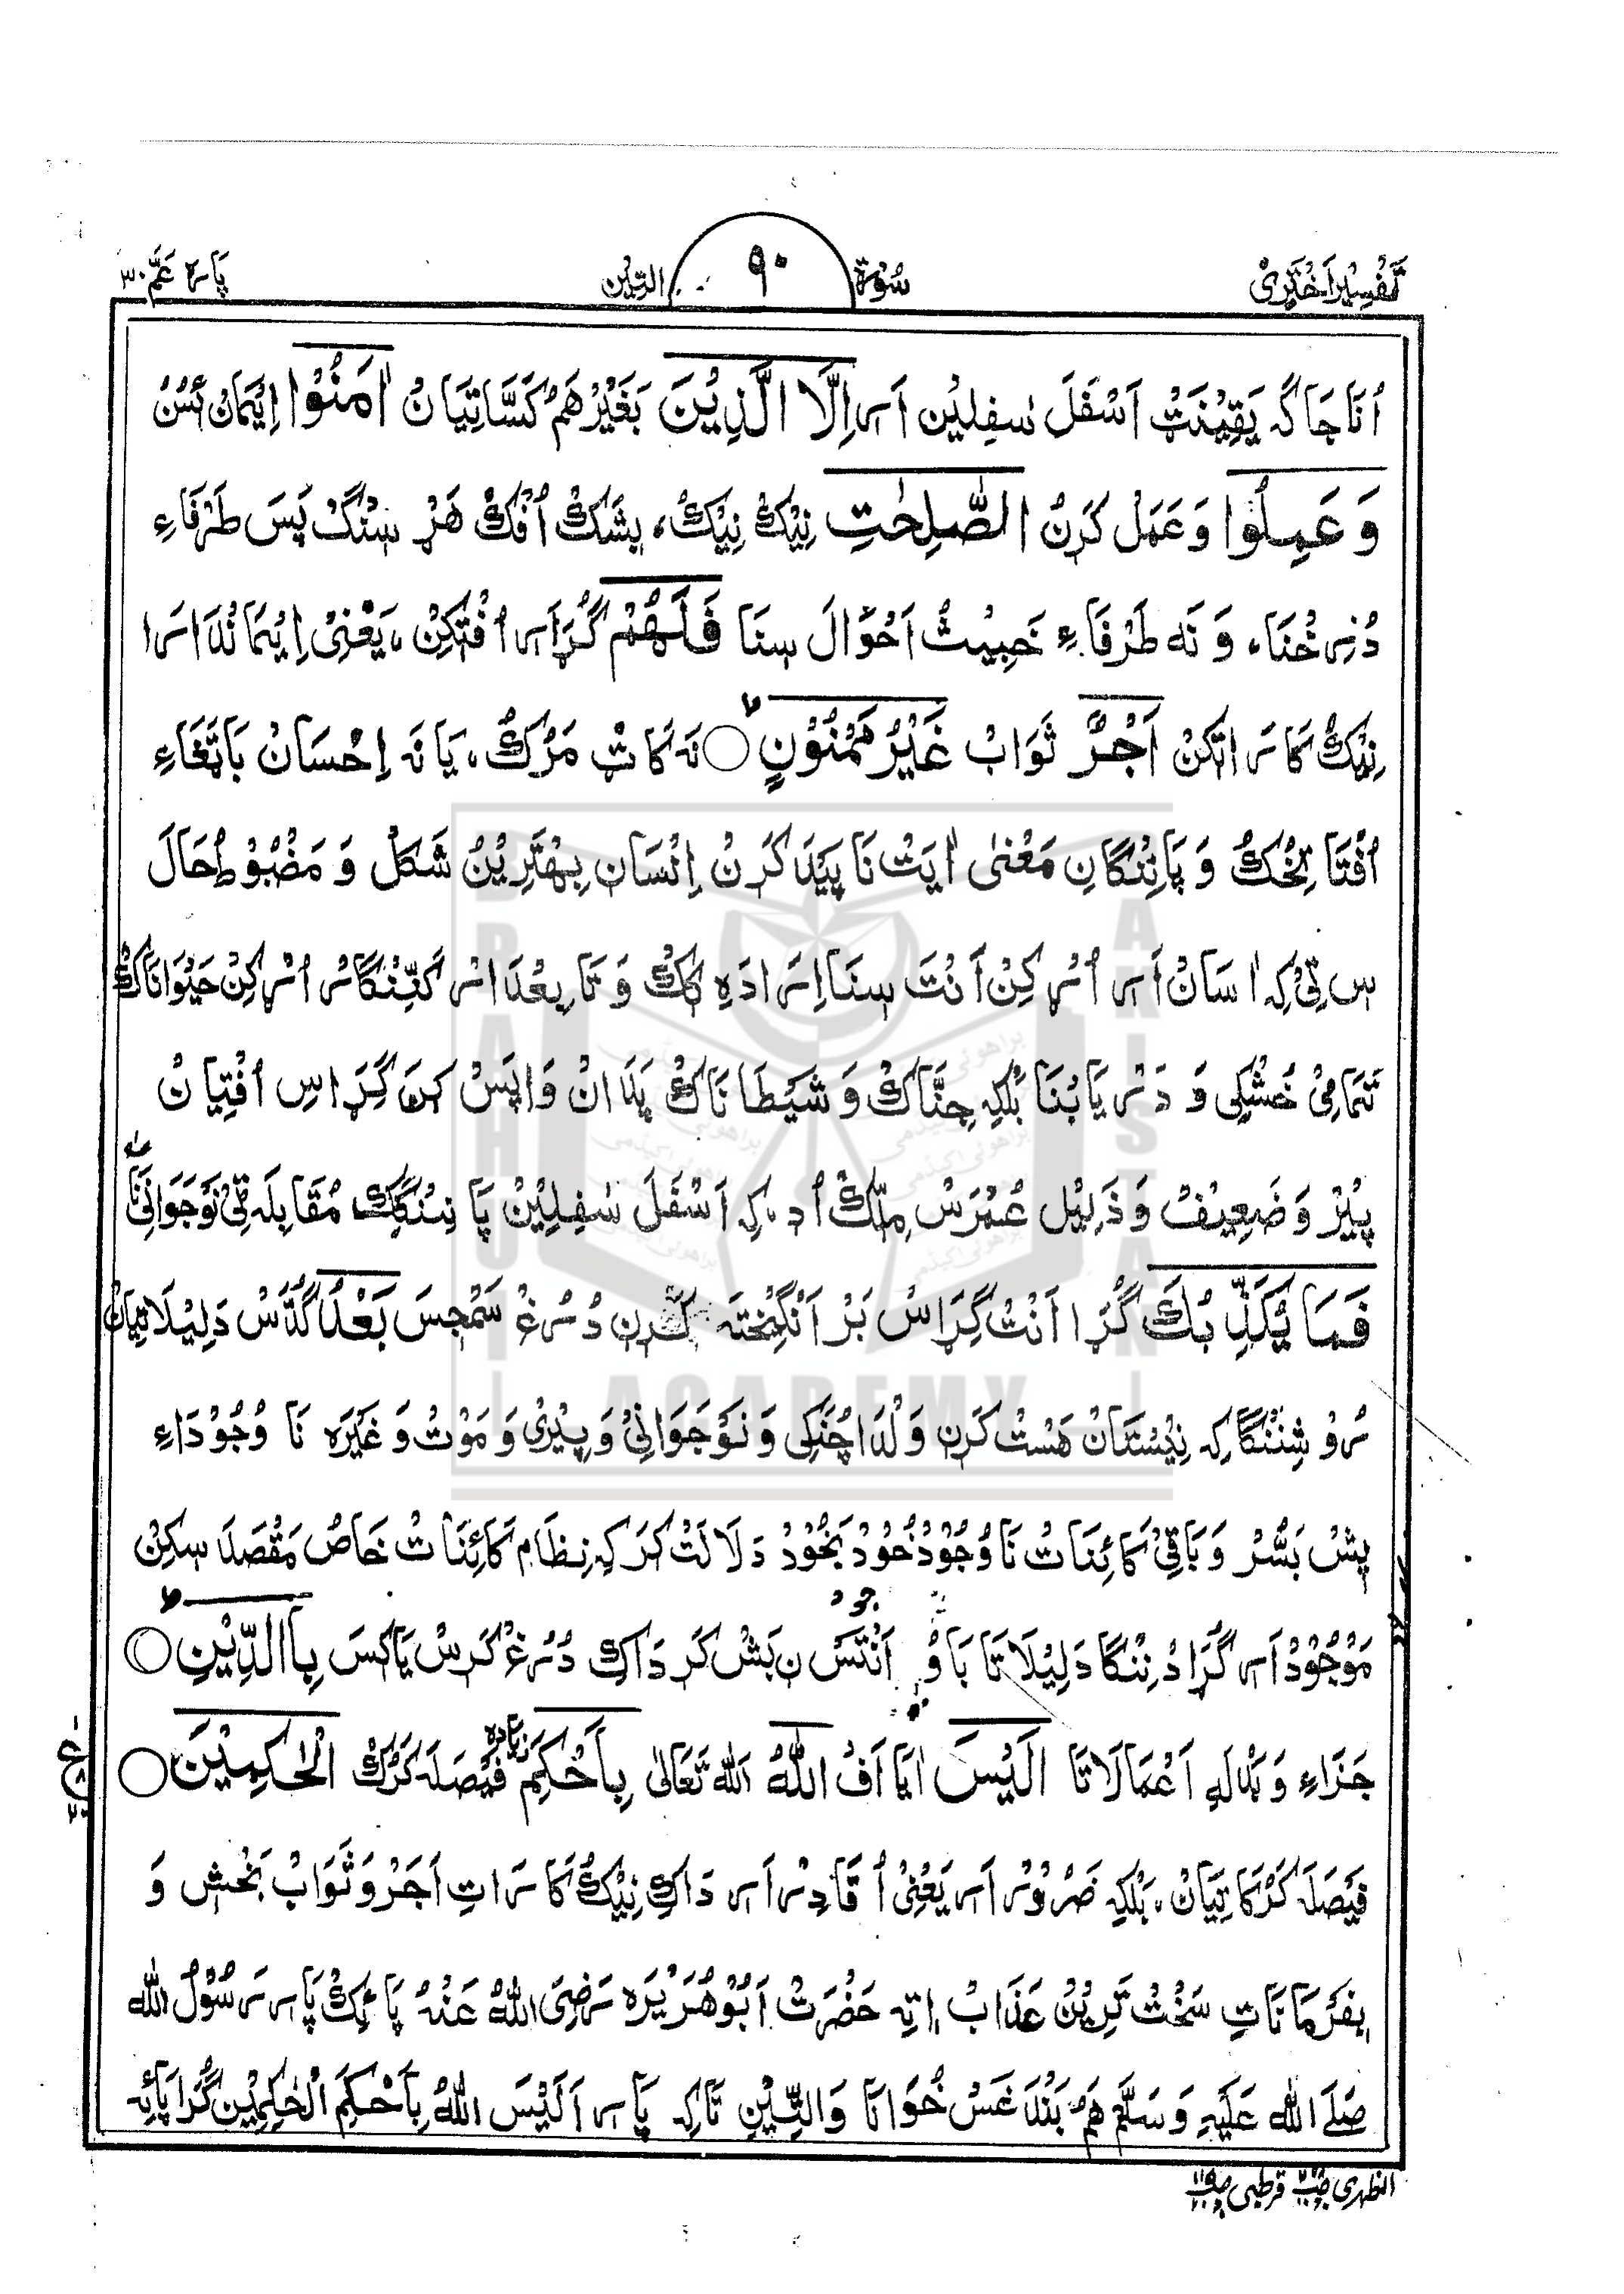 تَفْسِیْر اَخْتَرِیْ ۹۰ سُوْرَة التِّیْن پَارہ عَمَّ ۳۰
اُنَا جَاگَہ یَقِیْنَتْ اَسْفَلَ سٰفِلِیْن اَرِ اِلَّا الَّذِیْنَ بَغَیْر ھَمْ کَسَّاتِیَانْ اٰمَنُوْا اِیْمَانْ ئسُنْ
وَ عَمِلُوا وَ عَمَلْ کَرِنْ الصّٰلِحٰتِ نِیْکْ نِیْکْ، بِشَکْ اُفْکْ ھَرْ سِنْگْ پَسَ طَرْفَاءِ
دُنِ خُنَا، وَ نَہ طَرْفَاءِ خَبِیْثْ اَحْوَالَ سِنَا فَلَهُمْ گُڑَا اَرِ اُفْتَکِنْ، یَعْنِیْ اِیْمَانْدَارَا
نِیْکْ کَارَاتکِنْ اَجْرٌ ثَوَابْ غَیْرُ مَمْنُوْنٍ ○ نَہ کَاتْ مَرْکْ، یَا نَہ اِحْسَانْ بَاتَغَاءِ
اُفْتَا تِخْکْ وَ پَانِنْگَانِ مَعْنیٰ اٰیَتْ نَا پَیْدَا کَرِنْ اِنْسَانِ بِہْتَرِیْنْ شَکْلْ وَ مَضْبُوْطْ حَالَ
سِ تِیْ کِہ اٰسَانْ اَرِ اُرْ کِنْ اَنْتَ سِنَا اِرَادَہِ کِکْ وَ تَابِعْدَارْ کَنِّنْگَارْ اُرْ کِنْ حَیْوَانَاکْ
تَمَامِیْ خُشْکِی وَ دَرْیَابُنَا بَلْکِہ جِنَّاکْ وَ شَیْطَانَاکْ پَدَانْ وَاپَسْ کِرَنَ گِڑَاسِ اُفْتِیَانْ
پِیْرْ وَ ضَعِیْفْ وَ ذَلِیْل عُمْرَسْ مِلّکْ اُدِ، کِہ اَسْفَلَ سٰفِلِیْنْ پَانِنْگِکْ مُقَابِلَہ تِیْ نَوْجَوَانِیْنَا
فَمَا یُکَذِّبُکَ گُڑَا اَنْتْ گِڑَاسْ بَرْ اَنْگِیْخْتَہ کَرِنْ دُرْغْ سَمْجِسَ بَعْدُ گُڈَّسْ دَلِیْلَاتِیَانْ
رُوْ شِنِنْگَا کِہ نِیْسْتَانْ ھَسْتْ کَرِنْ وَلْدَا چُنَکِی وَ نَوْجَوَانِیْ وَ پِیْرِیْ وَ مَوْتْ وَ غَیْرَہ نَا وُجُوْدَاءِ
پِشْ بَسُّرْ وَ بَاقِیْ کَائِنَاتْ نَا وُجُوْدْ خُوْد بَخُوْدْ دَلَالَتْ کَرَ کِہ نِظَامِ کَائِنَاتْ خَاصْ مَقْصَدَ سِکِنْ
مَوْجُوْدْ اَرِ گُڑَا دُنِنْگَا دَلِیْلَاتَا بَاوُ اَنْتَسْ نِ بَشْ کَر دَاکِ دُرْغْ کَرِسْ یَا کَسَ بِالدِّیْنِ ○
جَزَاءِ وَ بَدَلَہِ اَعْمَالَاتَا اَلَیْسَ اٰیَا اَفْ اللّٰهُ اللہ تَعَالیٰ بِاَحْکَمِ زیادہ فَیْصَلَہ کَرْکْ الْحٰکِمِیْنَ ○
فَیْصَلَہ کَرْکَاتِیَانْ، بَلْکِہ ضَرْوُرْ اَرِ یَعْنِیْ اُ قَادِرْ اَرِ دَاکِ نِیْکْ کَارَاتِ اَجَرْ وَ ثَوَابْ بَخْشِ وَ
بِفَرْمَانَاتِ سَخْتْ تَرِیْنْ عَذَابْ اِتِہ حَضْرَتْ اَبُوْ ھُرَیْرَہ رَضِیَ اللہُ عَنْہُ پَائِکْ پَارِ رَسُوْلُ اللہ
صَلَّے اللہ عَلَیْہِ وَسَلَّمَ ھَمْ بَنْدَغَسْ خُوَانَا وَالتِّیْنِ تَاکِہ پَارِ اَلَیْسَ اللہُ بِاَحْکَمِ الْحٰکِمِیْنَ گُڑَا پَائِہ
المظہری قرطبی
BRAHUI ACADEMY PAKISTAN